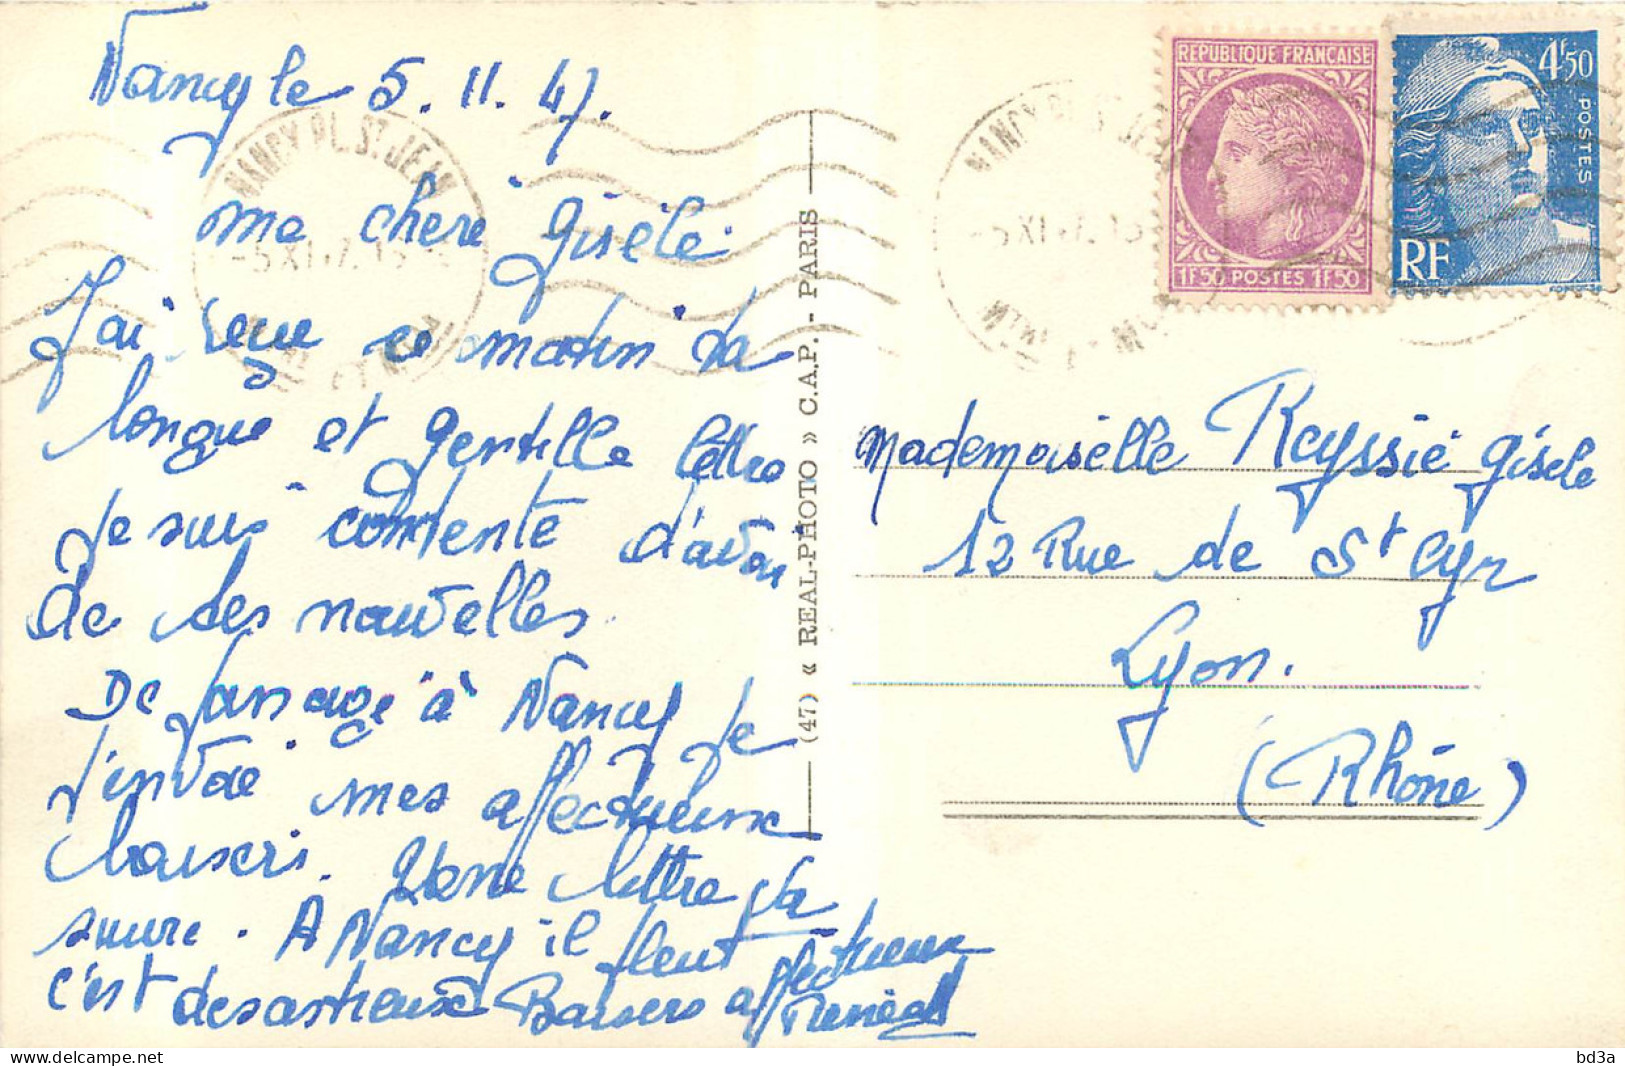 Nancy le 5.11.47.
ma chere Gisèle.
J'ai reçue ce matin ta
longue et gentille lettre
je suis contente d'avoir
de tes nouvelles.
De passage à Nancy je
t'envoie mes affectueux
baisers. Une lettre va
suivre. A Nancy il pleut
c'est desastreux Baisers affectueux
Renée
(47) « REAL-PHOTO » C.A.P. - PARIS
NANCY PL. ST JEAN
NANCY PL. ST JEAN
REPUBLIQUE FRANÇAISE
1F50 POSTES 1F50
4F50
POSTES
RF
Mademoiselle Reyssié Gisele
12 Rue de St Cyr
Lyon.
(Rhône)
bd3a